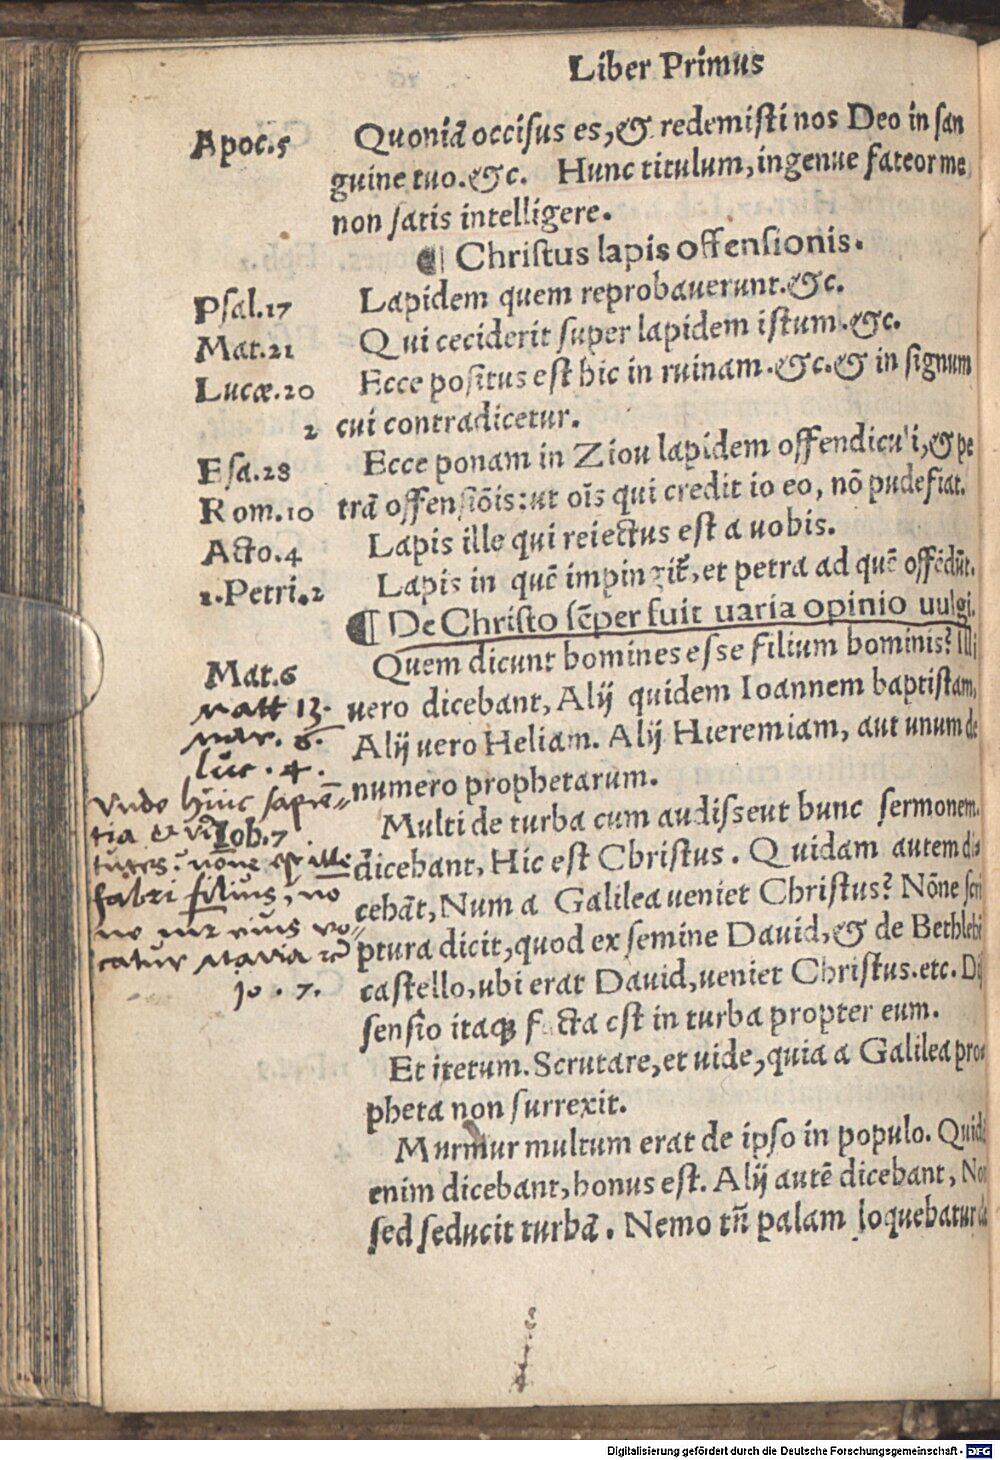 Liber Primus
Apoc.5
Quoniā occisus es, & redemisti nos Deo in san
guine tuo.&c. Hunc titulum, ingenue fateor me
non satis intelligere.
¶ Christus lapis offensionis.
Psal.17 Lapidem quem reprobauerunt.&c.
Mat.21 Qui ceciderit super lapidem istum.&c.
Lucæ.20 Ecce positus est hic in ruinam.&c.& in signum
2 cui contradicetur.
Esa.28 Ecce ponam in Ziou lapidem offendiculi, & pe
Rom.10 trā offensiōis: ut oīs qui credit io eo, nō pudefiat.
Acto.4 Lapis ille qui reiectus est a uobis.
1.Petri.2 Lapis in quē impingūt, et petra ad quē offēdūt.
¶ De Christo sēper fuit uaria opinio uulgi.
Mat.6 Quem dicunt homines esse filium hominis? Illi
matt 13. uero dicebant, Alij quidem Ioannem baptistam,
mar. 6. Alij uero Heliam. Alij Hieremiam, aut unum de
luc. 4. numero prophetarum.
Vnde huic sapiē-
tia et vir
Ioh.7 Multi de turba cum audisseut hunc sermonem.
tutes? nōne est ille dicebant, Hic est Christus. Quidam autem di
fabri filius, no cebāt, Num a Galilea ueniet Christus? Nōne scri
ne mr eius vo- ptura dicit, quod ex semine Dauid, & de Bethlehē
catur Maria castello, ubi erat Dauid, ueniet Christus.etc. Dis
Io. 7. sensio itaq; facta est in turba propter eum.
Et itetum. Scrutare, et uide, quia a Galilea pro
pheta non surrexit.
Murmur multum erat de ipso in populo. Quidā
enim dicebant, bonus est. Alij autē dicebant, Non
sed seducit turbā. Nemo tn̄ palam loquebatur de
Digitalisierung gefördert durch die Deutsche Forschungsgemeinschaft - DFG